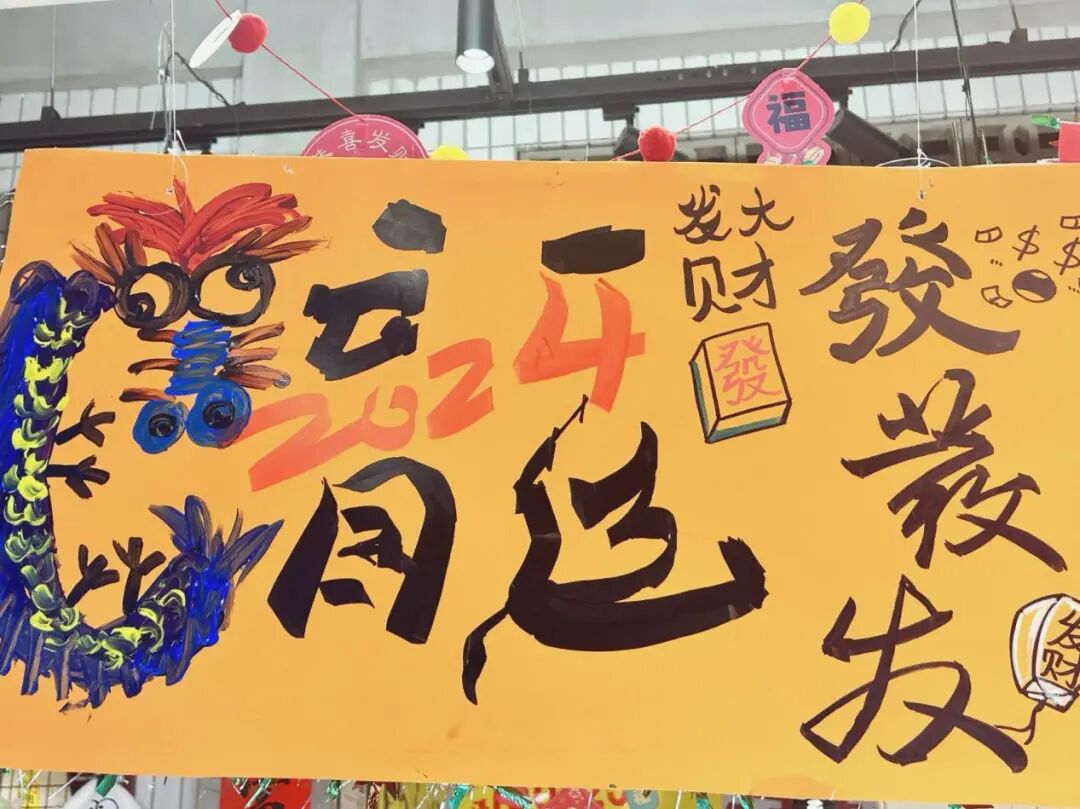 喜发财
福
龍
2024
发大
财
發
發
$ $
发
发
财